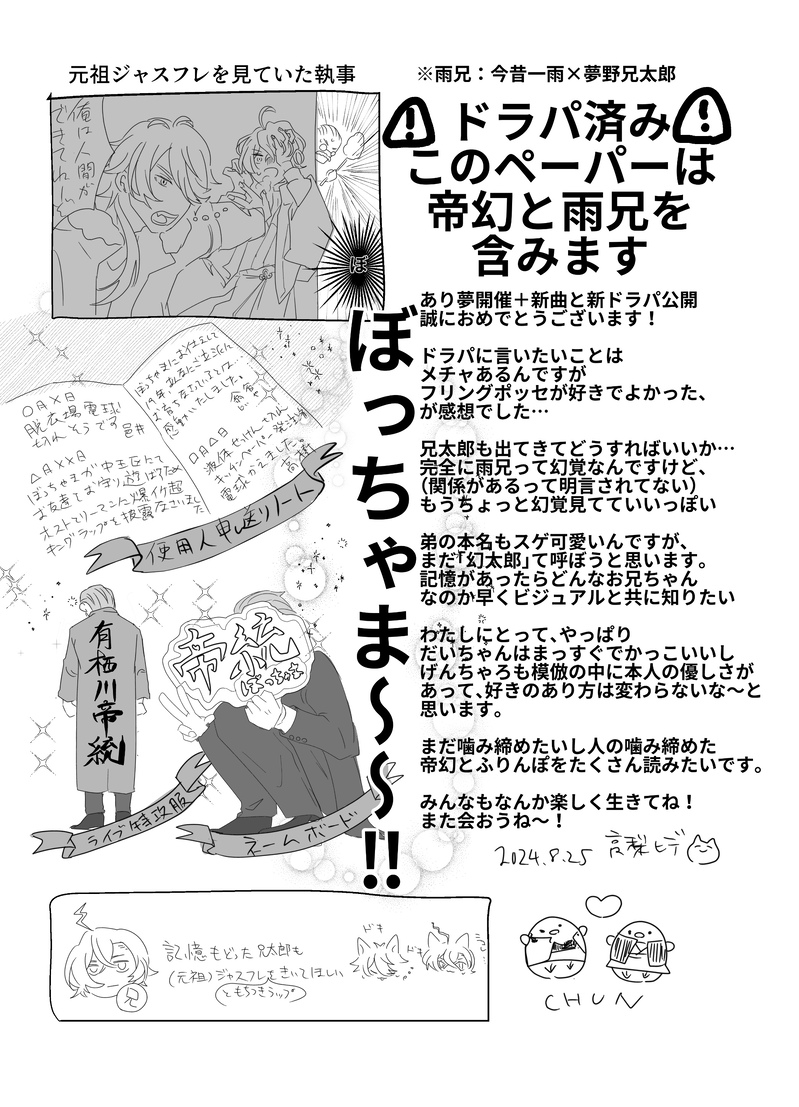 元祖ジャスフレを見ていた執事
俺は人間が
できてねぃ
ぼ
ぼっちゃま〜〜〜!!
〇月×日
脱衣場電球
切れそうです
△月××日
ぼっちゃまが中王区にて
お友達とお守り遊ばすため
キングラップを披露なさいました
ぼっちゃまにお仕えして
19年
感動いたしました。
〇月△日
液体せっけん
キッチンペーパー発注済
電球かえました。
高樹
使用人申し送りノート
有栖川帝統
ライブ特攻服
帝統
ぼっちゃま
ネームボード
※雨兄：今昔一雨×夢野兄太郎
ドラパ済み
このペーパーは
帝幻と雨兄を
含みます
あり夢開催＋新曲と新ドラパ公開
誠におめでとうございます！
ドラパに言いたいことは
メチャあるんですが
フリングポッセが好きでよかった、
が感想でした…
兄太郎も出てきてどうすればいいか…
完全に雨兄って幻覚なんですけど、
（関係があるって明言されてない）
もうちょっと幻覚見てていいっぽい
弟の本名もスゲ可愛いんですが、
まだ「幻太郎」て呼ぼうと思います。
記憶があったらどんなお兄ちゃん
なのか早くビジュアルと共に知りたい
わたしにとって、やっぱり
だいちゃんはまっすぐでかっこいいし
げんちゃろも模倣の中に本人の優しさが
あって、好きのあり方は変わらないな〜と
思います。
まだ噛み締めたいし人の噛み締めた
帝幻とふりんぽをたくさん読みたいです。
みんなもなんか楽しく生きてね！
また会おうね〜！
2024.8.25 高梨ヒデ
兄
記憶もどった兄太郎も
(元祖)ジャスフレをきいてほしい
ともちつきラップ
ドキ
ドキ
CHUN